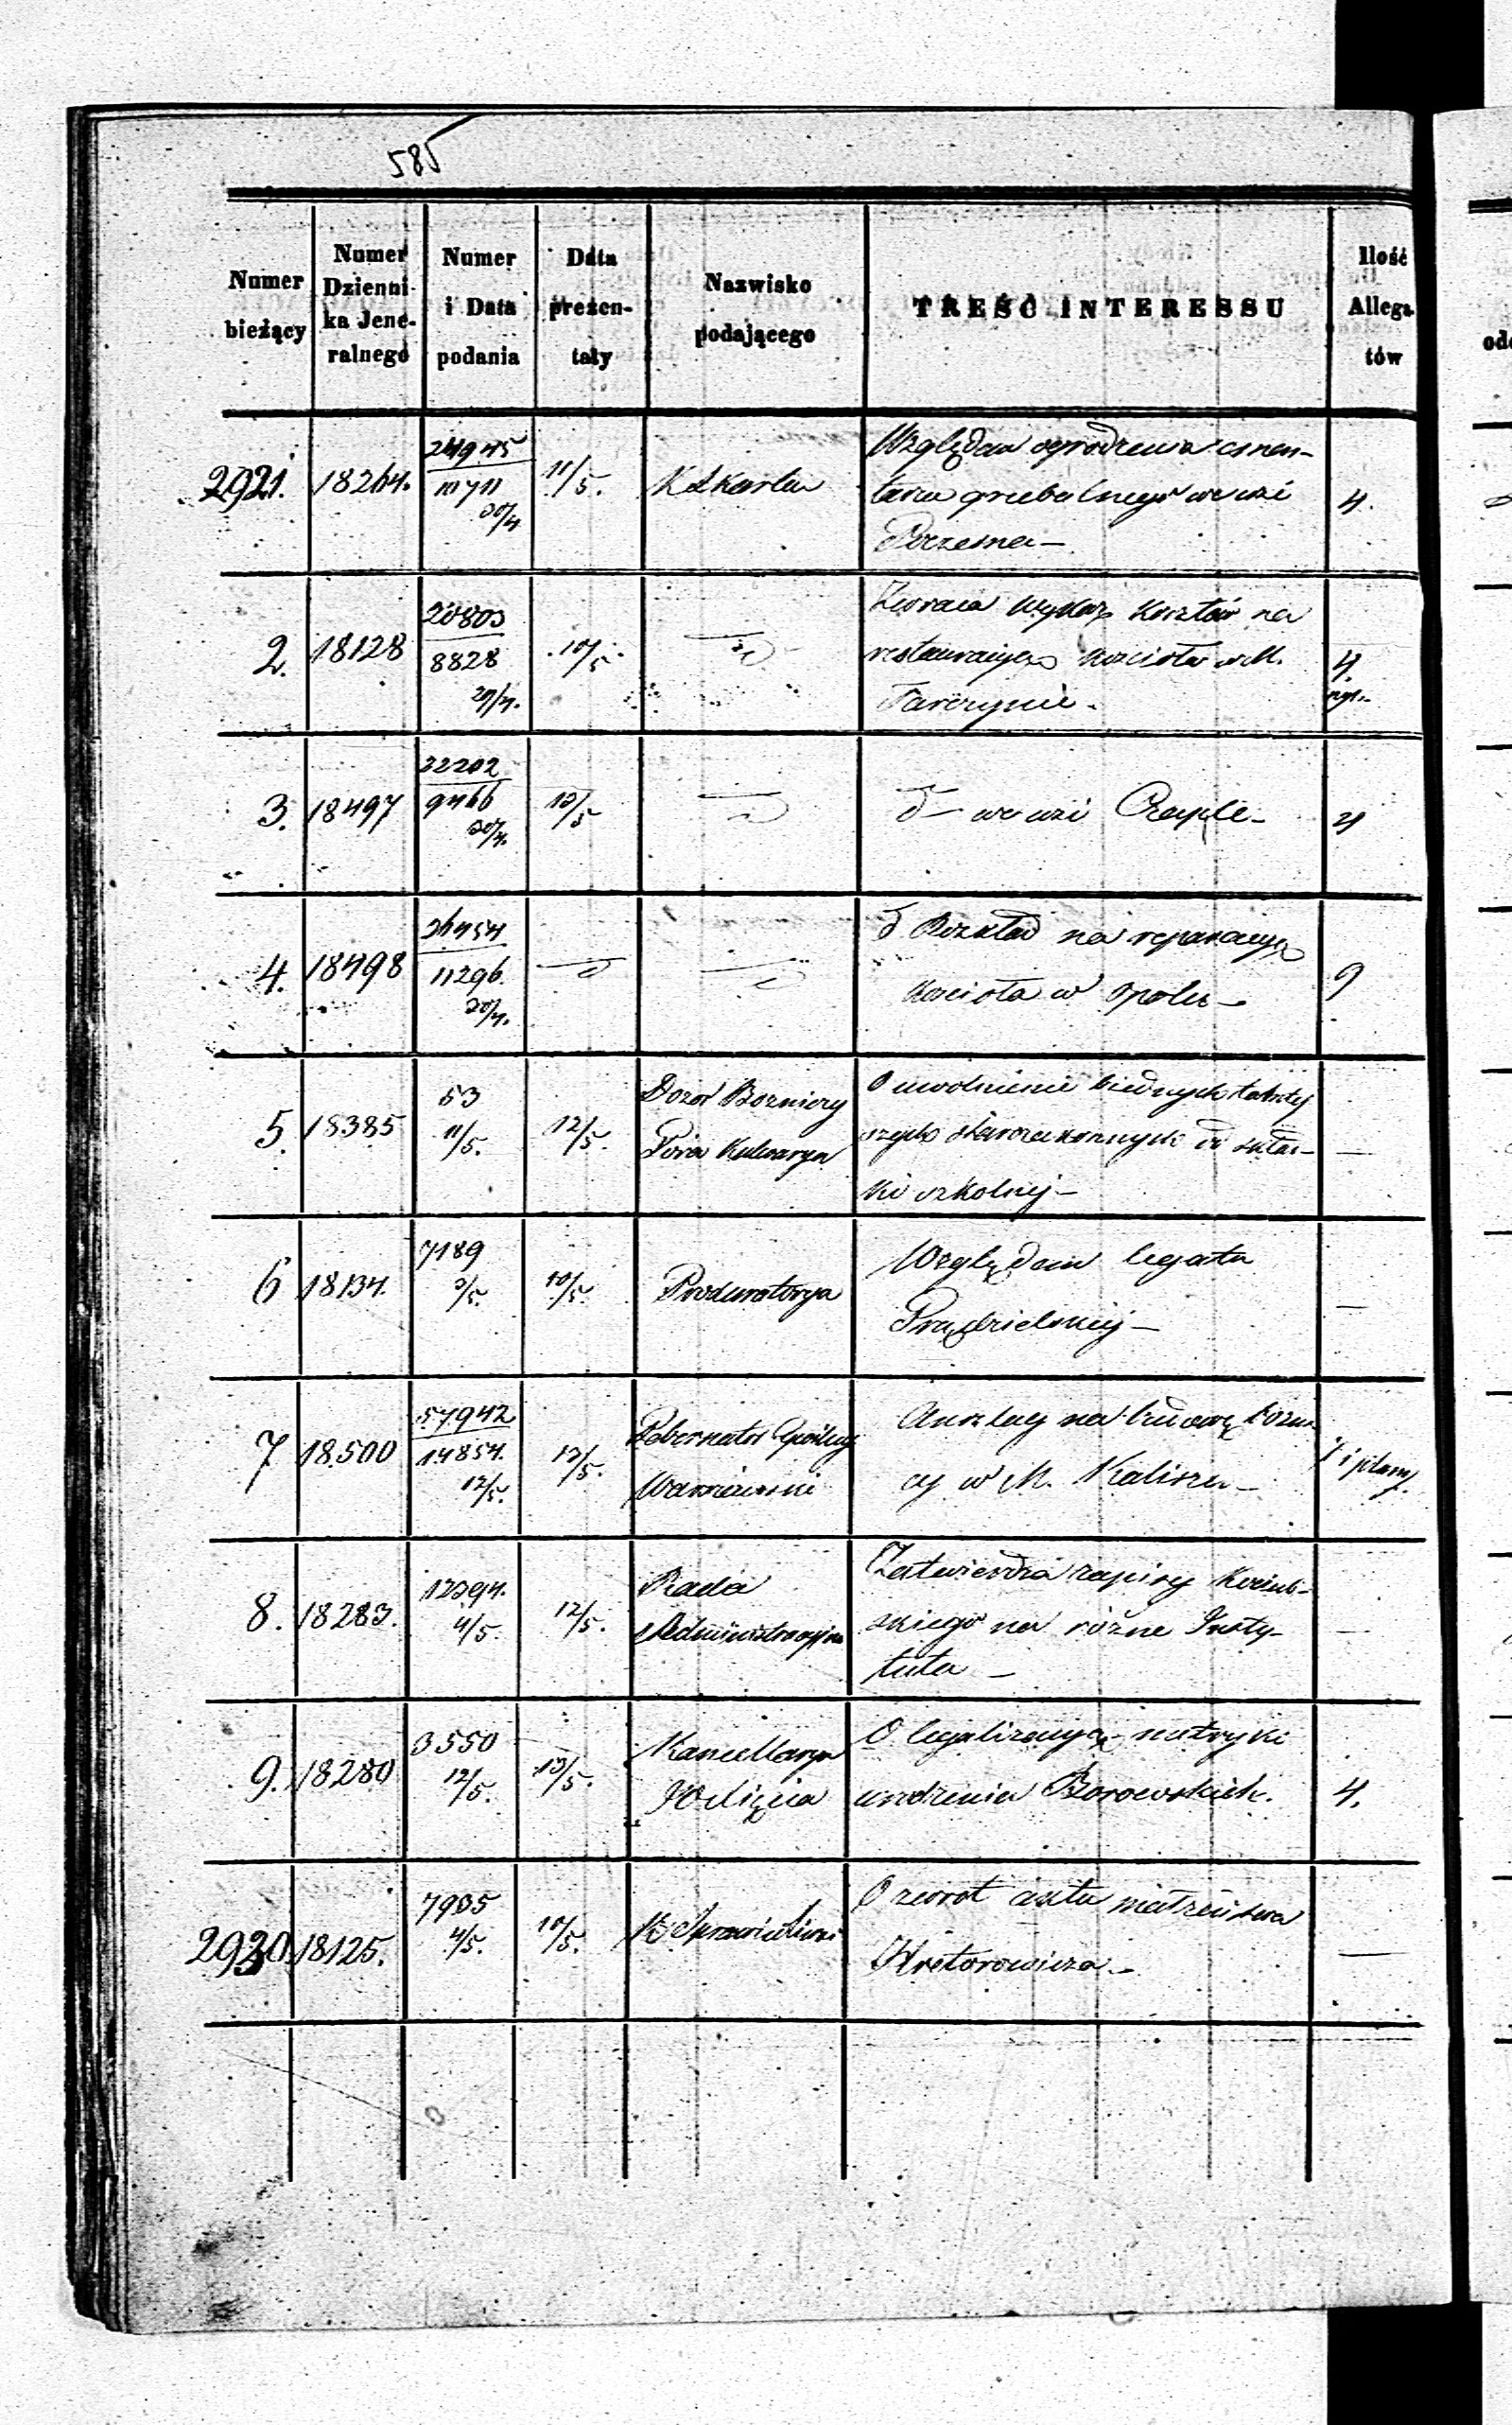 585
Numer bieżący
Numer Dzienni- ka Jene- ralnego
Numer i Data podania
Data prezen- taty
Nazwisko podającego
TREŚĆ INTERESSU
Ilość Allega tów
2921. 18264. 24945 10711 30/4 11/5. K Skarbu
Względem ogrodzenia cmen-
tarza grzebalnego we wsi
Poczesna — 4.
2. 18128 20803 8828 29/4. 10/5. d
Zwraca wykaz kosztów na
restauracyą kościoła w M.
Tarczynie. 4.
3. 18497 22202 9466 30/4. 13/5 d
d — we wsi Czaple — 4
4. 18498 26454 11296. 30/4. d d
d Rozkład na reparacyą
kościoła w Opolu — 9
5. 18385 53 11/5. 12/5. Dozór Bożniczy
Góra Kalwarya
O uwolnienie biednych
starozakonnych od skład-
ki szkolnej — —
6 18134. 7189 3/5. 10/5. Prokuratorya
Względem legatu
Prądzielskiej — —
7 18500 57942 14854. 12/5. 13/5. Gubernator Cywilny
Warszawski
Anszlag na budowę bóżni
cy w M. Kaliszu — i plany
8. 18283. 12394. 4/5. 12/5. Rada
Administracyjna
Zatwierdza zapisy
skiego na różne Insty-
tuta — —
9. 18280 3550 12/5. 13/5. Kancellarya
J O Xięcia
O legalizacyą metryki
urodzenia Borowskich. 4.
2930 18125. 7935 4/5. 10/5. K Sprawiedliwości
O zwrot aktu małżeństwa
—